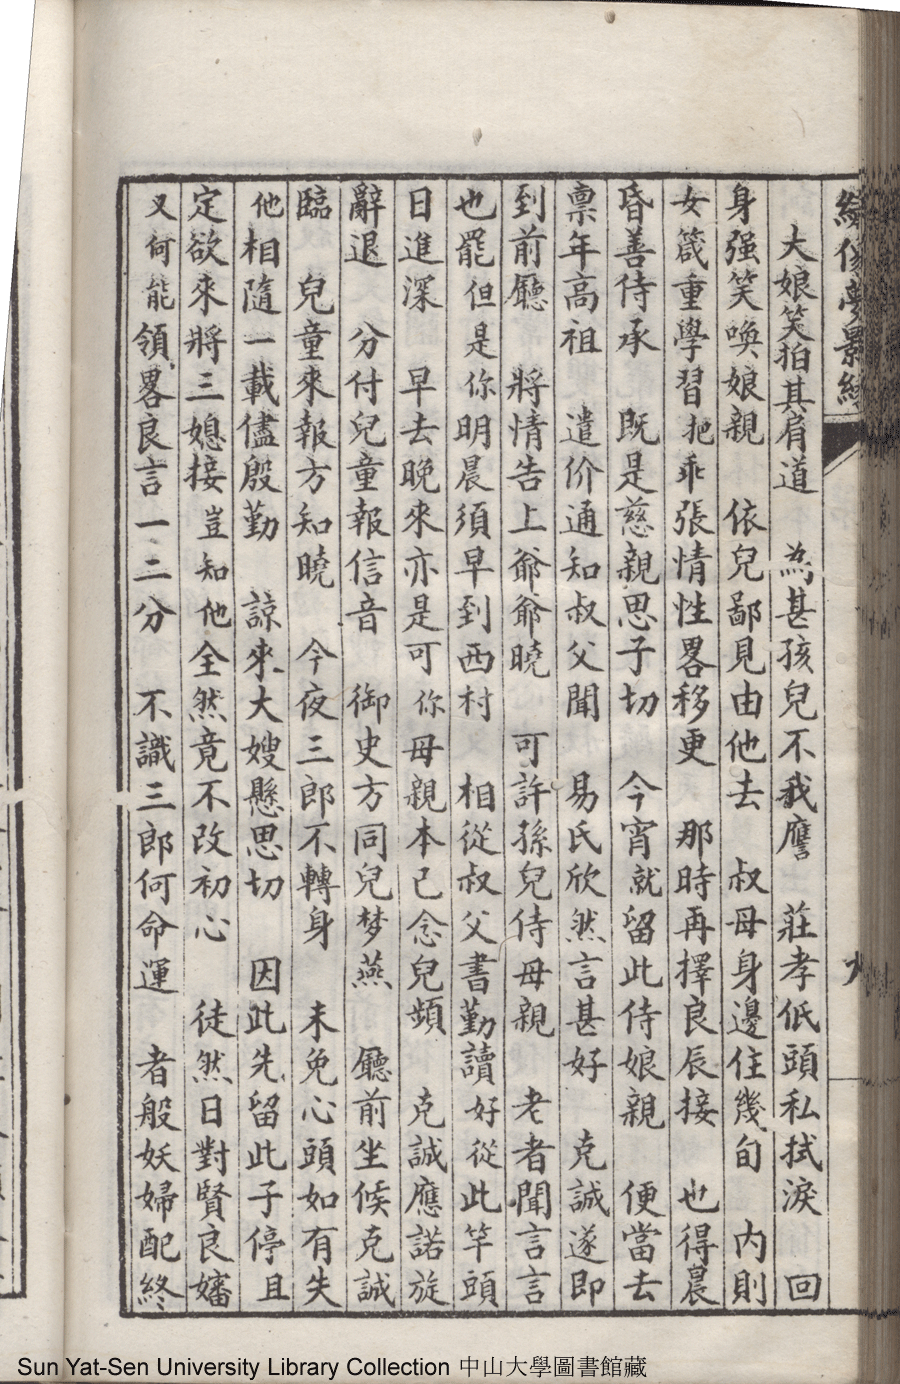 大娘笑拍其肩道　為甚孩兒不我譍　莊孝低頭私拭淚　回
身强笑喚娘親　依兒鄙見由他去　叔母身邊住幾旬　內則
女箴重學習　把乖張情性畧移更　那時再擇良辰接　也得晨
昏善侍承　既是慈親思子切　今宵就留此侍娘親　便當去
禀年高祖　遣价通知叔父聞　易氏欣然言甚好　克誠遂即
到前廳　將情告上爺爺曉　可許孫兒侍母親　老者聞言言
也罷　但是你明晨須早到西村　相從叔父書勤讀　好從此竿頭
日進深　早去晚來亦是可　你母親本已念兒頻　克誠應諾旋
辭退　分付兒童報信音　御史方同兒梦燕　廳前坐候克誠
臨　兒童來報方知曉　今夜三郎不轉身　未免心頭如有失
他相隨一載儘殷勤　諒來大嫂懸思切　因此先留此子停　且
定欲來將三媳接　豈知他全然竟不改初心　徒然日對賢良嬸
又何能領畧良言一二分　不識三郎何命運　者般妖婦配終
Sun Yat-Sen University Library Collection 中山大學圖書館藏